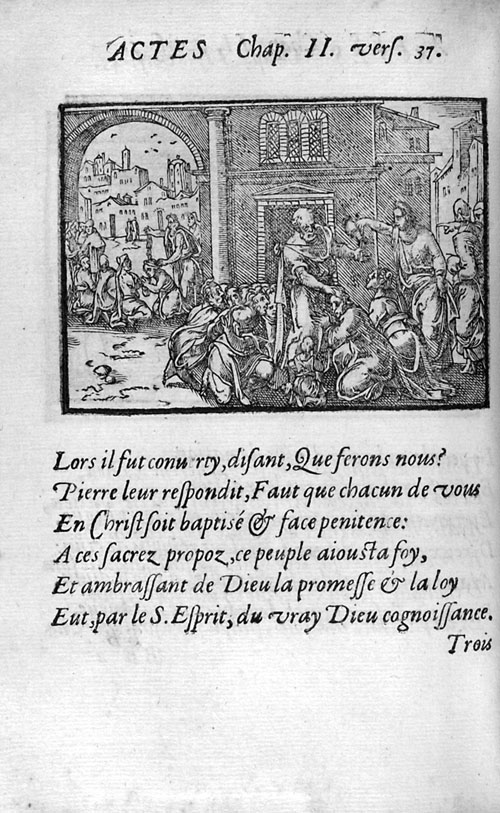 ACTES Chap. II. verſ. 37.
Lors il fut conu rty, diſant, Que ferons nous?
Pierre leur reſpondit, Faut que chacun de vous
En Chriſt ſoit baptisé & face penitence:
A ces ſacrez propoz, ce peuple aiouſta foy,
Et ambraſſant de Dieu la promeſſe & la loy
Eut, par le S. Eſprit, du vray Dieu cognoiſſance.
Trois